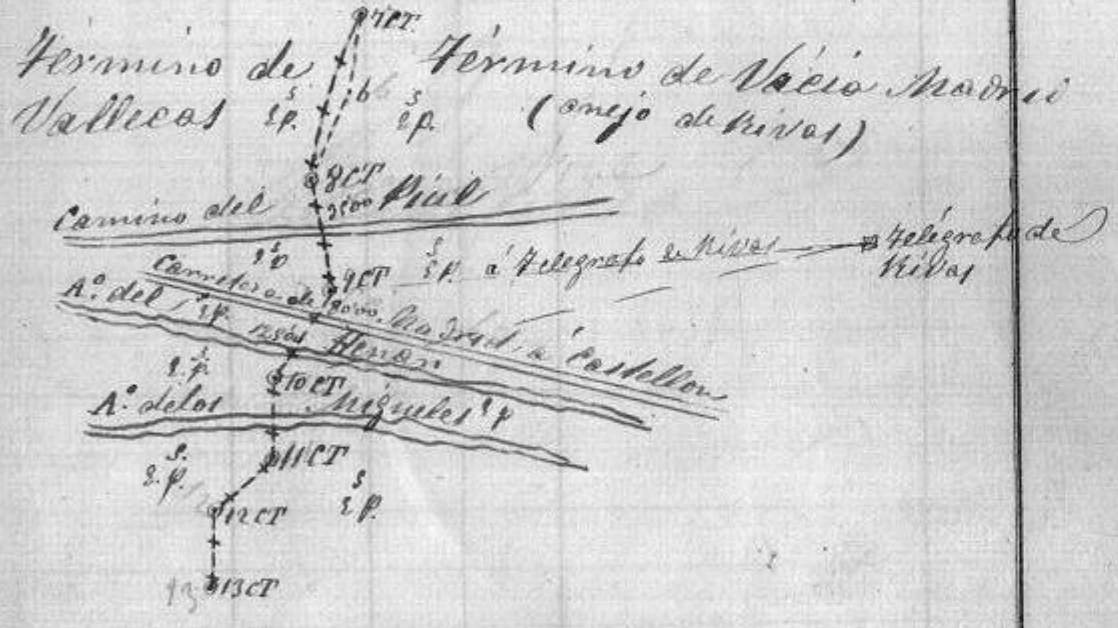 7CT.
Término de
Vallecas
Término de Vacia Madrid
(anejo de Rivas)
s
s
8CT
Camino del Piul
9CT
á Telégrafo de Rivas
Telégrafo de
Rivas
Carretera de Madrid á Castellon
A.º del Henar
10CT
A.º de los Migueles
11CT
12CT
13CT